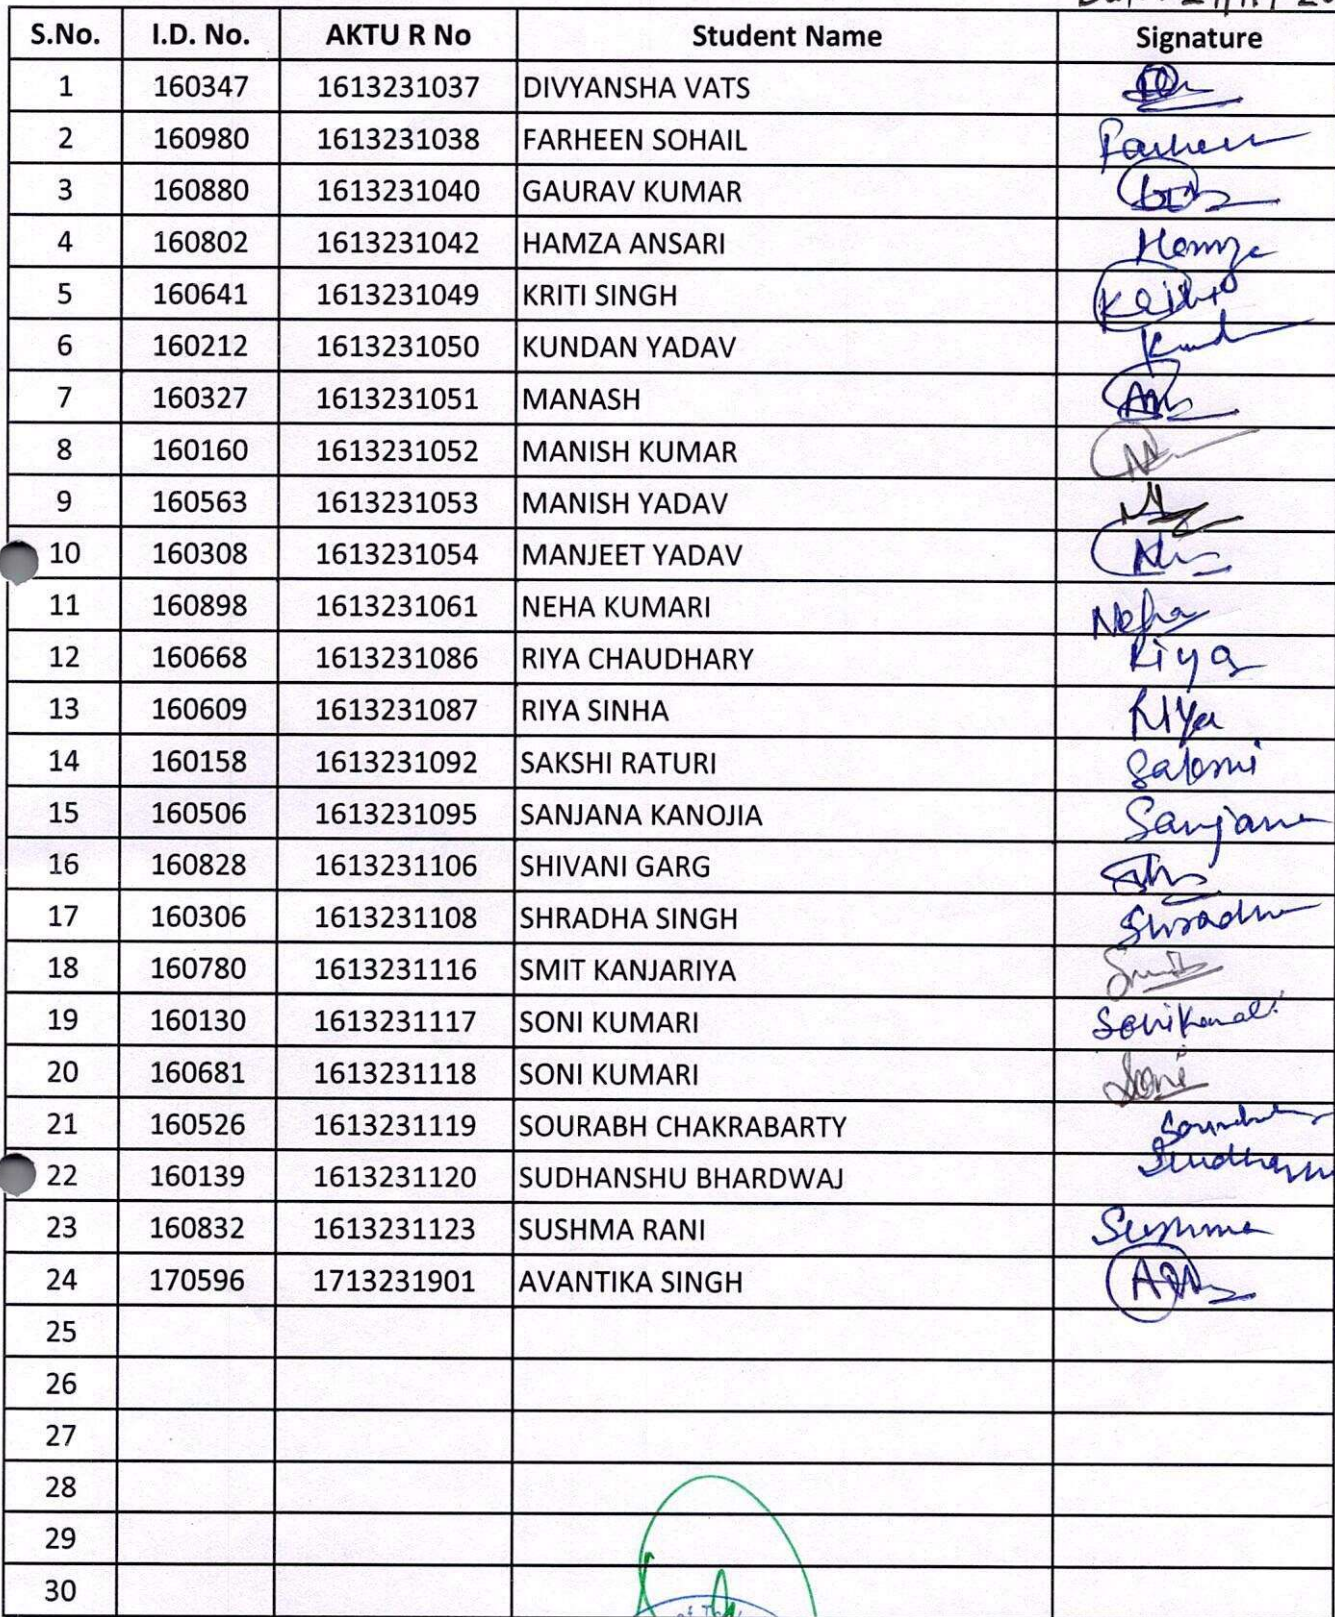 S.No. I.D. No. AKTU R No Student Name Signature
1 160347 1613231037 DIVYANSHA VATS
2 160980 1613231038 FARHEEN SOHAIL Farheen
3 160880 1613231040 GAURAV KUMAR
4 160802 1613231042 HAMZA ANSARI Hamza
5 160641 1613231049 KRITI SINGH
6 160212 1613231050 KUNDAN YADAV
7 160327 1613231051 MANASH
8 160160 1613231052 MANISH KUMAR
9 160563 1613231053 MANISH YADAV
10 160308 1613231054 MANJEET YADAV
11 160898 1613231061 NEHA KUMARI Neha
12 160668 1613231086 RIYA CHAUDHARY Riya
13 160609 1613231087 RIYA SINHA Riya
14 160158 1613231092 SAKSHI RATURI
15 160506 1613231095 SANJANA KANOJIA Sanjana
16 160828 1613231106 SHIVANI GARG
17 160306 1613231108 SHRADHA SINGH Shradha
18 160780 1613231116 SMIT KANJARIYA
19 160130 1613231117 SONI KUMARI
20 160681 1613231118 SONI KUMARI Soni
21 160526 1613231119 SOURABH CHAKRABARTY
22 160139 1613231120 SUDHANSHU BHARDWAJ
23 160832 1613231123 SUSHMA RANI Sushma
24 170596 1713231901 AVANTIKA SINGH
25
26
27
28
29
30